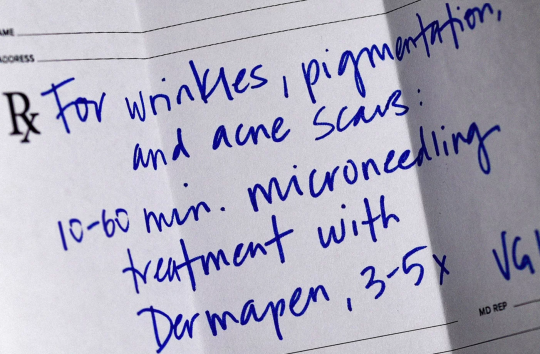 AME
ADDRESS
Rx For wrinkles, pigmentation,
and acne scars:
10-60 min. microneedling
treatment with
Dermapen, 3-5x
MD REP